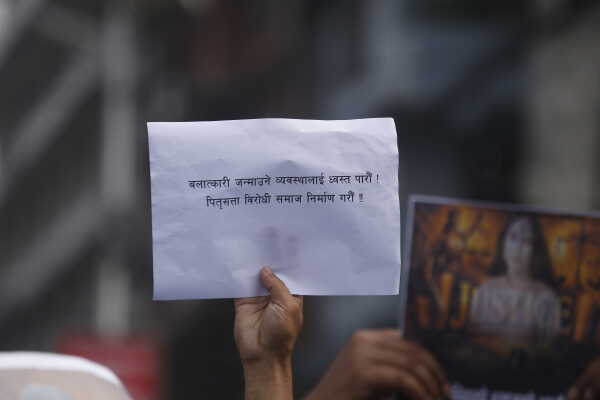 बलात्कारी जन्माउने व्यवस्थालाई ध्वस्त पारौँ !
पितृसत्ता विरोधी समाज निर्माण गरौँ !!
JUSTICE